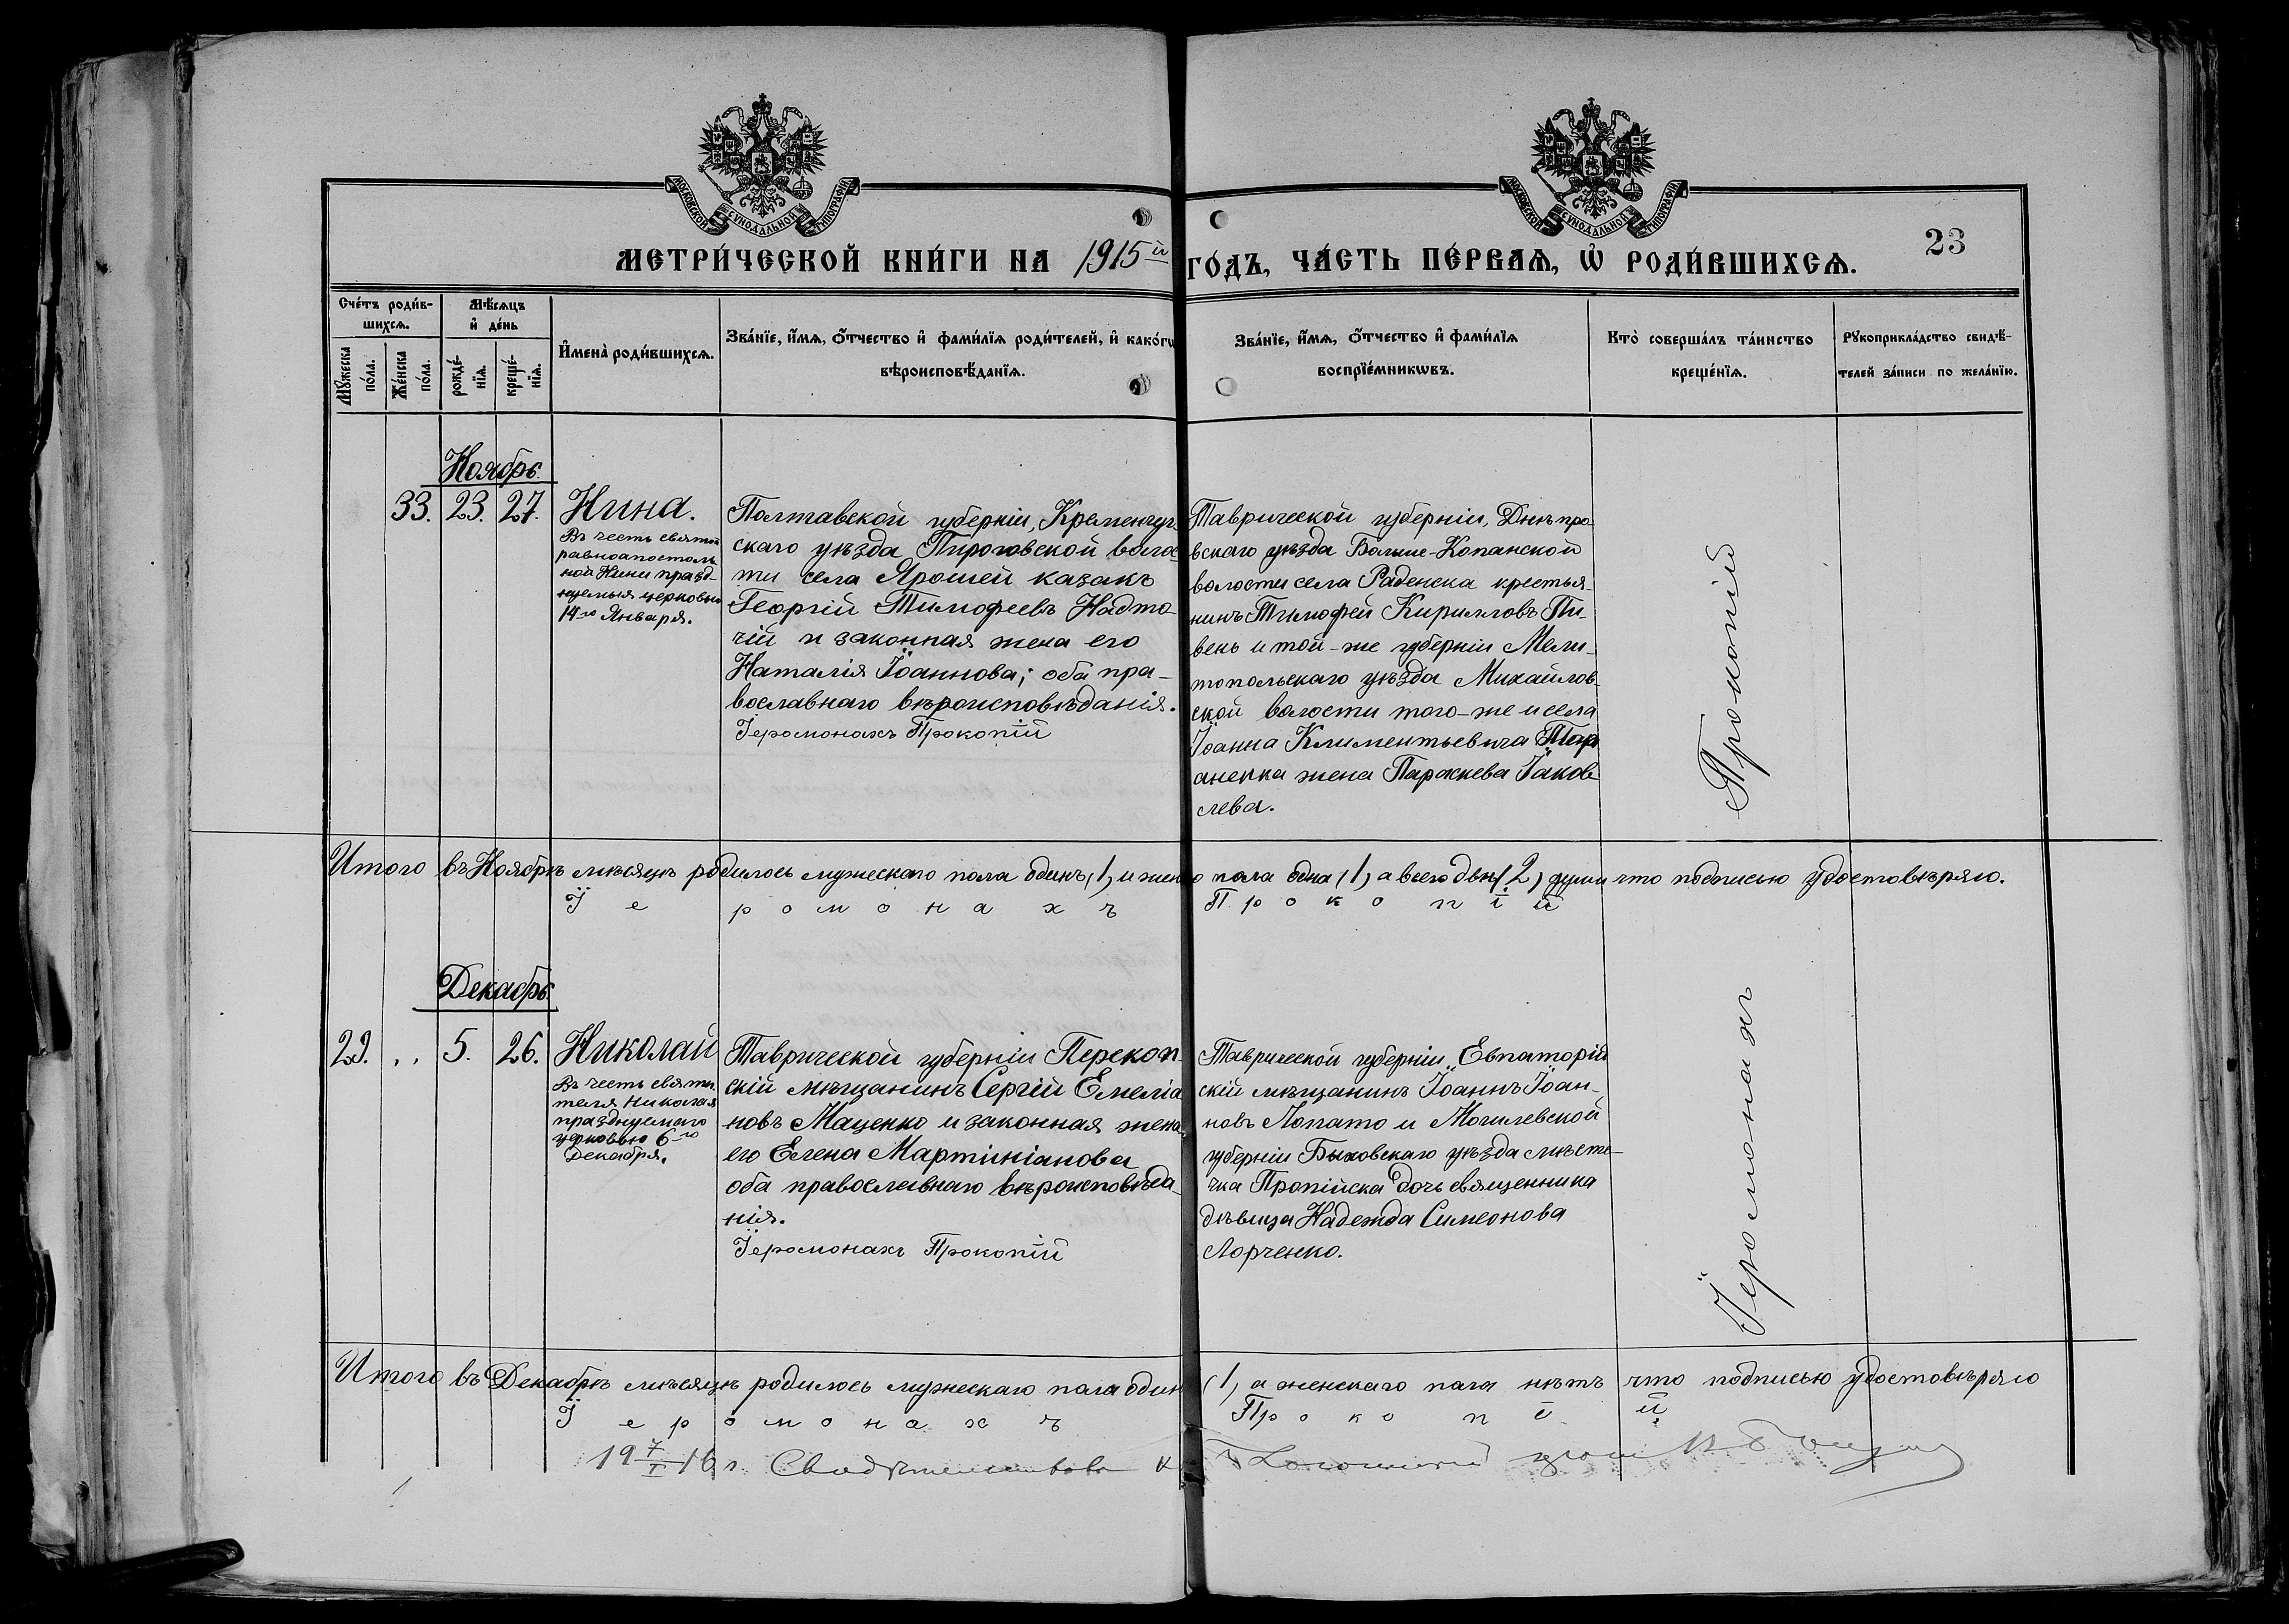 МОСКОВСКОЙ СУНОДАЛЬНОЙ ТИПОГРАФІИ
МОСКОВСКОЙ СУНОДАЛЬНОЙ ТИПОГРАФІИ
23
МЕТРИ́ЧЕСКОЙ КНИ́ГИ НА 1915й ГО́ДЪ, ЧА́СТЬ ПЕ́РВАѦ, Ѡ҆ РОДИ́ВШИХСѦ.
Сче́тъ роди́в-
шихсѧ.
Мѣ́сѧцъ
и҆ де́нь
Мꙋ́жеска
по́ла.
Же́нска
по́ла.
рожде́-
нїѧ.
креще́-
нїѧ.
И҆мена̀ роди́вшихсѧ.
Зва́нїе, и҆́мѧ, ѻ҆́тчество и҆ фами́лїѧ роди́телей, и҆ како́гѡ
вѣроисповѣ́данїѧ.
Зва́нїе, и҆́мѧ, ѻ҆́тчество и҆ фами́лїѧ
воспрїе́мникѡвъ.
Кто̀ соверша́лъ та́инство
креще́нїѧ.
Рꙋкоприкла́дство свидѣ́-
телей за́писи по жела́нїю.
Ноябрь.
33. 23. 27. Нина.
Въ честь святой
равноапостоль
ной Нины празд-
нуемыя церковью
14го Января.
Полтавской губерніи, Кременчуг
скаго уѣзда Пироговской волос
ти села Ярошей казакъ
Георгій Тимофеевъ Надто-
чій и законная жена его
Наталія Іоаннова; оба пра-
вославнаго вѣроисповѣданія.
Іеромонахъ Прокопій
Таврической губерніи, Днѣпро-
вскаго уѣзда Больше-Копанской
волости села Раденска крестья-
нинъ Тимофей Кирилловъ Пи-
вень и той-же губерніи Мели-
топольскаго уѣзда Михайлов-
ской волости того-же и села
Іоанна Климентьевича
жена Параскева Іаков-
лева.
Прокопій
Итого въ Ноябрѣ мѣсяцѣ родилось мужескаго пола одинъ (1) и жен о пола одна (1) а всего двѣ (2) души что подписью удостовѣряю.
Іеромонахъ Прокопій
Декабрь
29. „ 5. 26. Николай
Въ честь святи
теля Николая
празднуемаго
церковью 6го
Декабря.
Таврической губерніи Перекоп-
скій мѣщанинъ Сергій Емеліа
новъ Маценко и законная жена
его Елена Мартиніанова
оба православнаго вѣроисповѣда-
нія.
Іеромонахъ Прокопій
Таврической губерніи Евпаторій
скій мѣщанинъ Іоаннъ Іоан-
новъ Лопато и Могилевской
губерніи Быховскаго уѣзда мѣсте-
чка Пропійска дочь священника
дѣвица Надежда Симеонова
Лорченко.
Іеромонахъ
Итого въ Декабрѣ мѣсяцѣ родилось мужескаго пола один (1) а женскаго пола нѣтъ что подписью удостовѣряю
Іеромонахъ Прокопій
19 7/I 16 г.